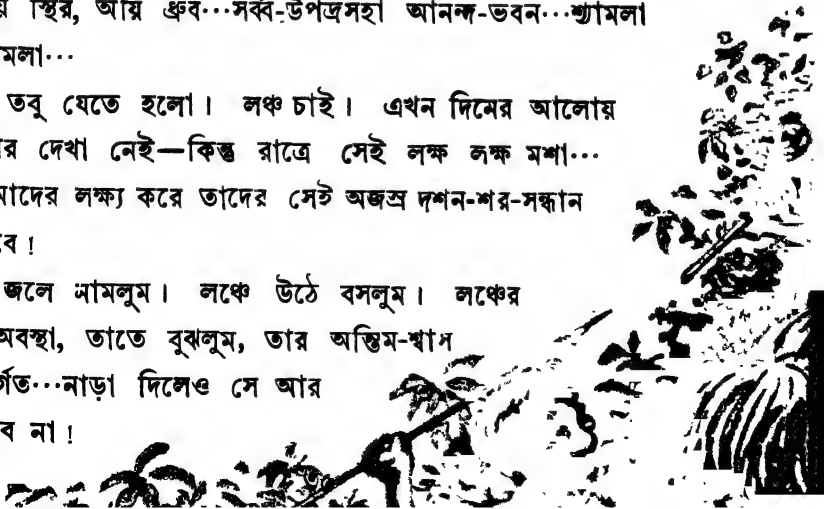 স্থির, আর ধ্রুব···সর্ব্ব-উপদ্রসহা আনন্দ-ভবন···শ্যামলা
মলা···
তবু যেতে হলো। লঞ্চ চাই। এখন দিনের আলোয়
র দেখা নেই—কিন্তু রাত্রে সেই লক্ষ লক্ষ মশা···
মাদের লক্ষ্য করে তাদের সেই অজস্র দশন-শর-সন্ধান
বে!
জলে নামলুম। লঞ্চে উঠে বসলুম। লঞ্চের
অবস্থা, তাতে বুঝলুম, তার অন্তিম-শ্বাস
র্গত···নাড়া দিলেও সে আর
ব না!